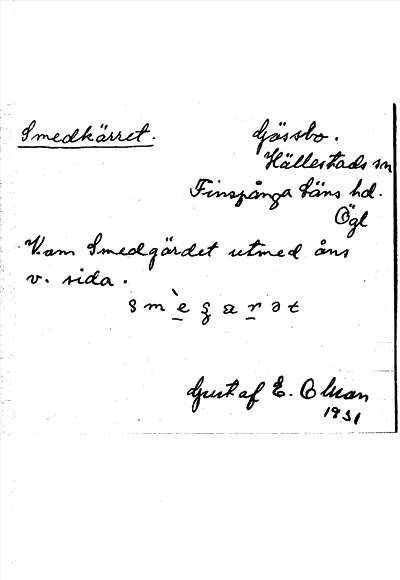 Smedkärret.
Gässbo.
Hällestads sn
Finspånga läns hd.
Ögl
V. om Smedgärdet utmed åns
v. sida.
Gustaf E. Olson
1931